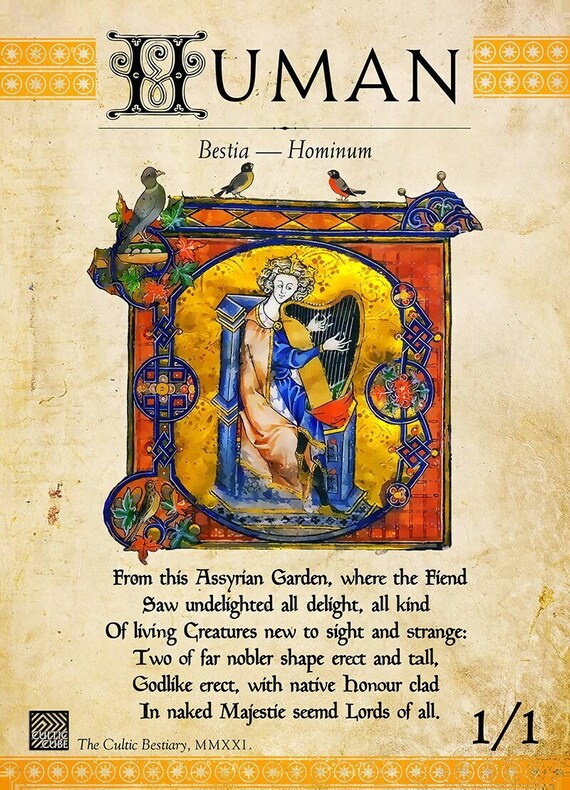 HUMAN
Bestia — Hominum
From this Assyrian Garden, where the Fiend
Saw undelighted all delight, all kind
Of living Creatures new to sight and strange:
Two of far nobler shape erect and tall,
Godlike erect, with native Honour clad
In naked Majestie seemd Lords of all.
1/1
CULTIC
CUBE
The Cultic Bestiary, MMXXI.